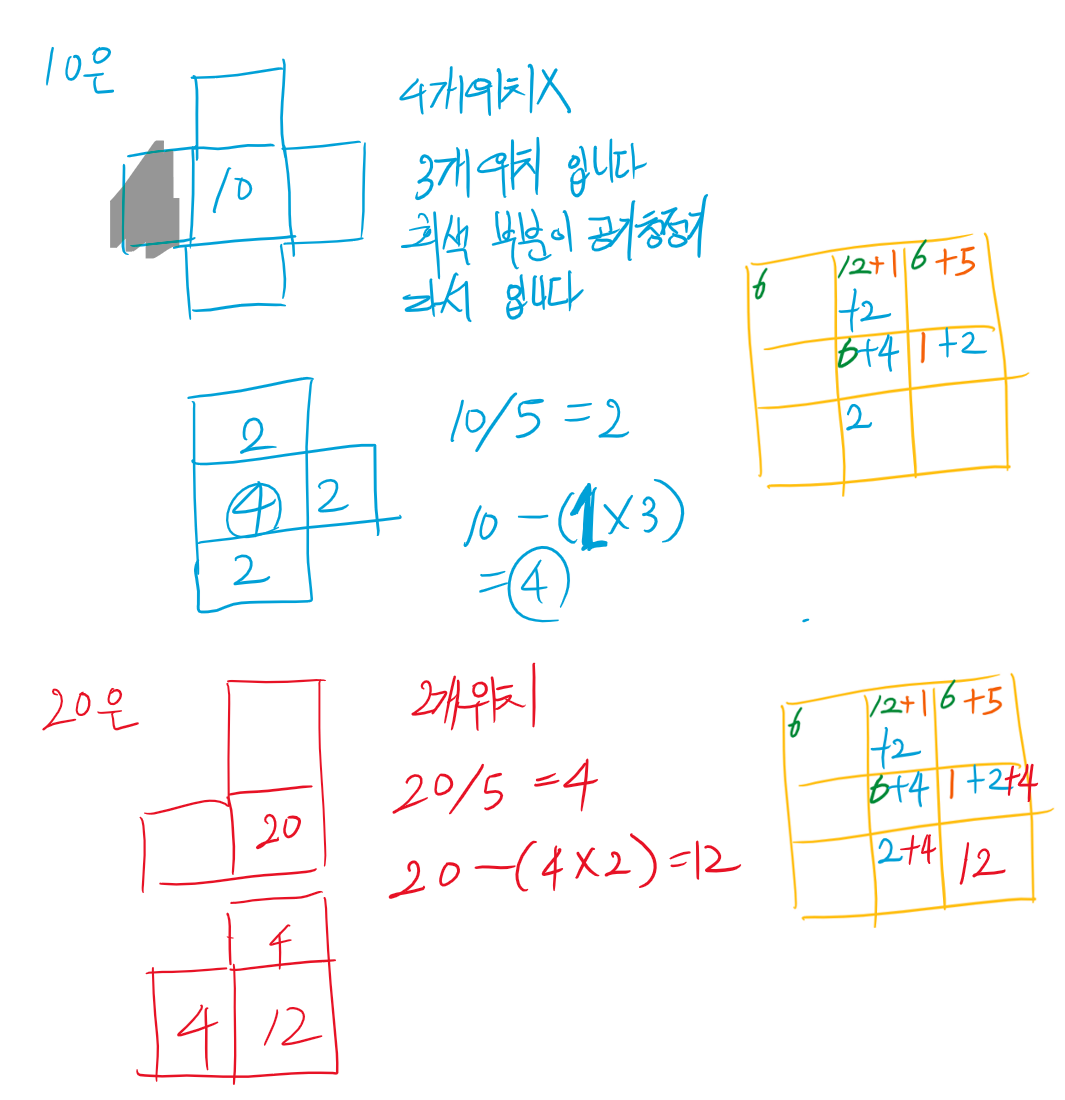 10은
4개위치X
10
3개 위치 입니다
회색 부분이 공기청정기
라서 입니다
6
12+1
6+5
+2
6+4
1+2
2
2
4
2
2
10/5 = 2
10-(1×3)
=4
20은
2개위치
20
20/5 = 4
20-(4×2)=12
4
4
12
6
12+1
6+5
+2
6+4
1+2+4
2+4
12